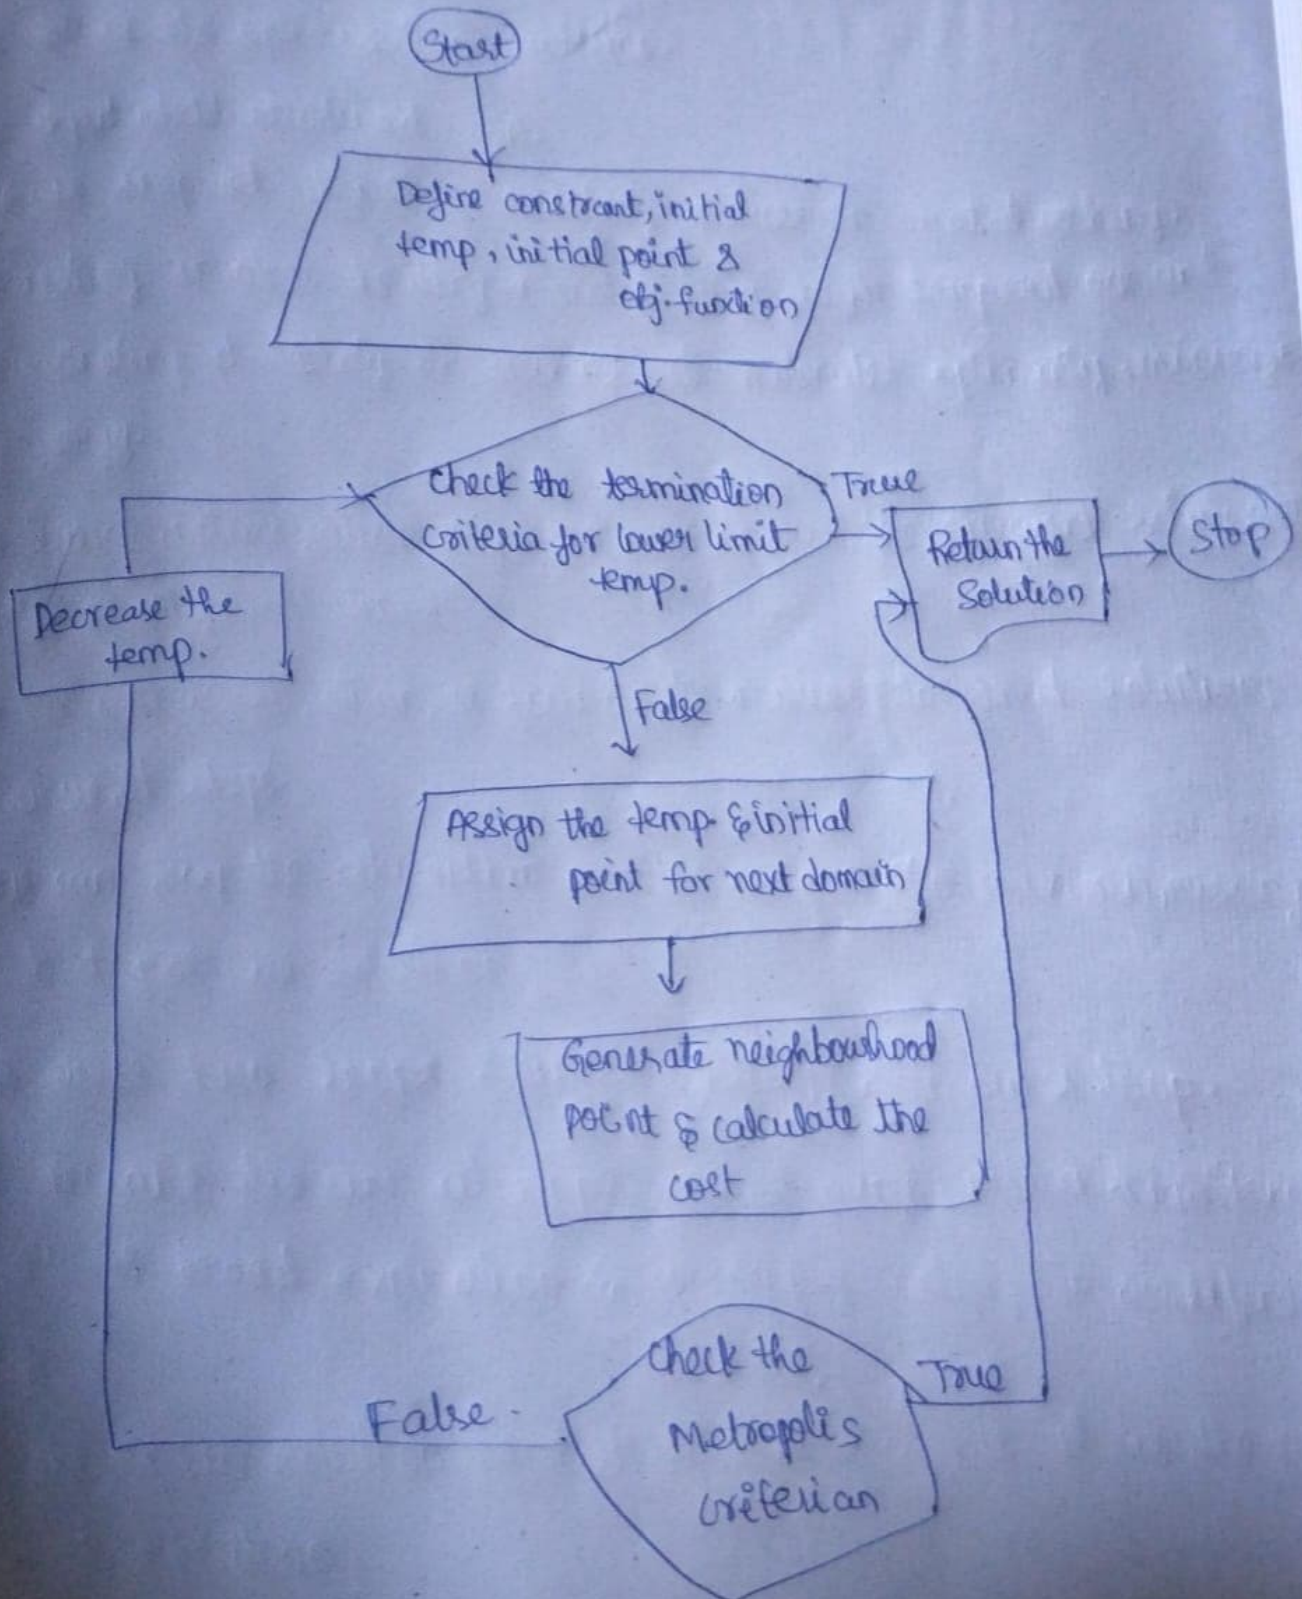 Start
Define constrant, initial
temp, initial point &
obj. function
Check the termination
criteria for lower limit
temp.
True
Retain the
Solution
Stop
Decrease the
temp.
False
Assign the temp. & initial
point for next domain
Generate neighbourhood
point & calculate the
cost
Check the
Metropolis
criterian
True
False